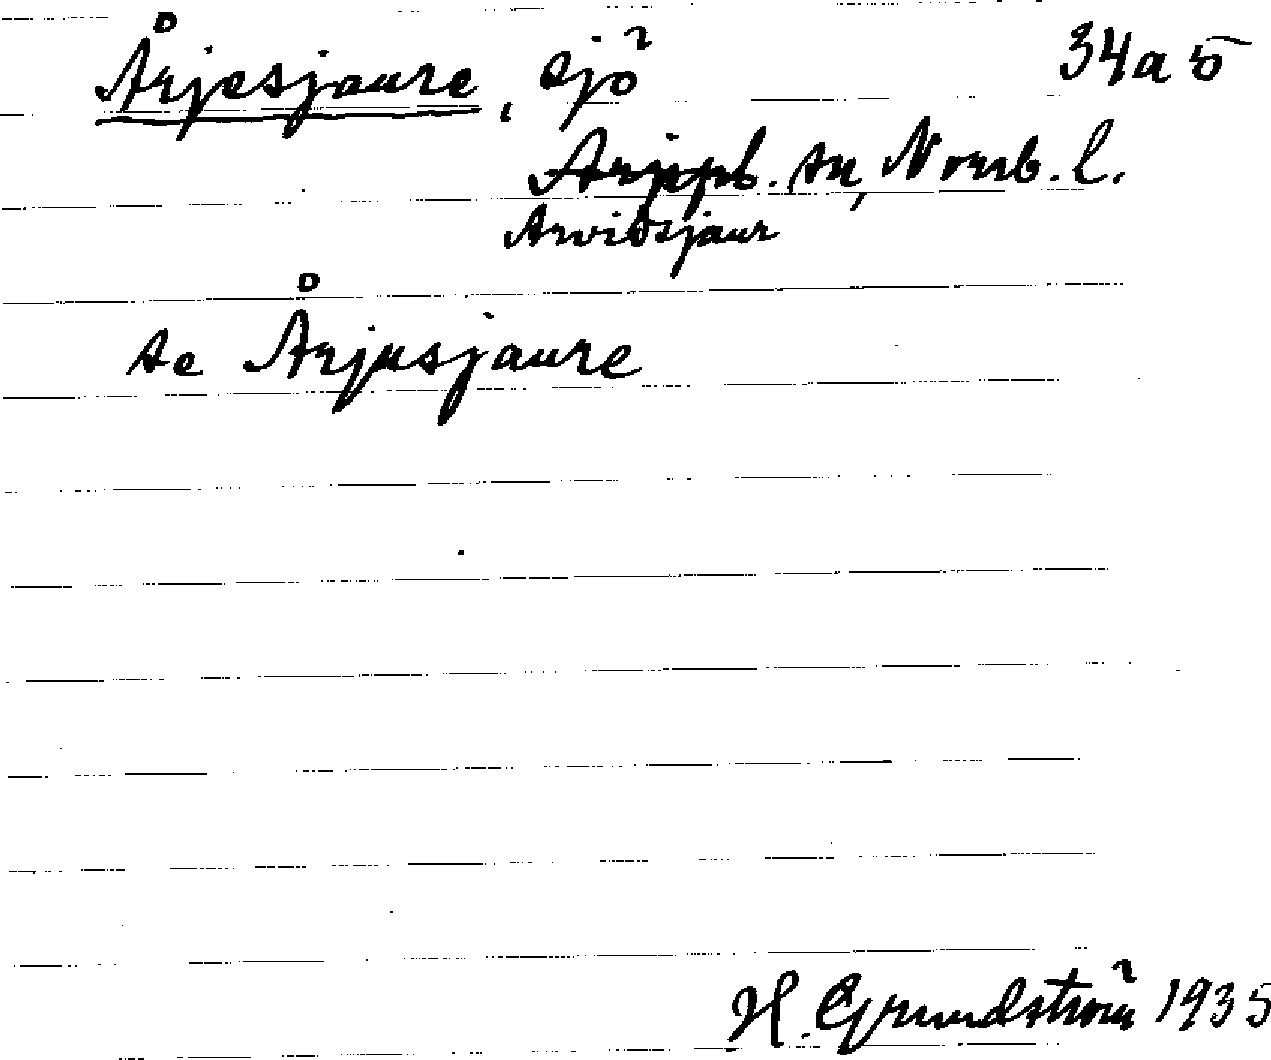 Årjesjaure, sjö 34a5
Arjepl. sn, Norrb. l.
Arvidsjaur
se Årjusjaure
H. Grundström 1935